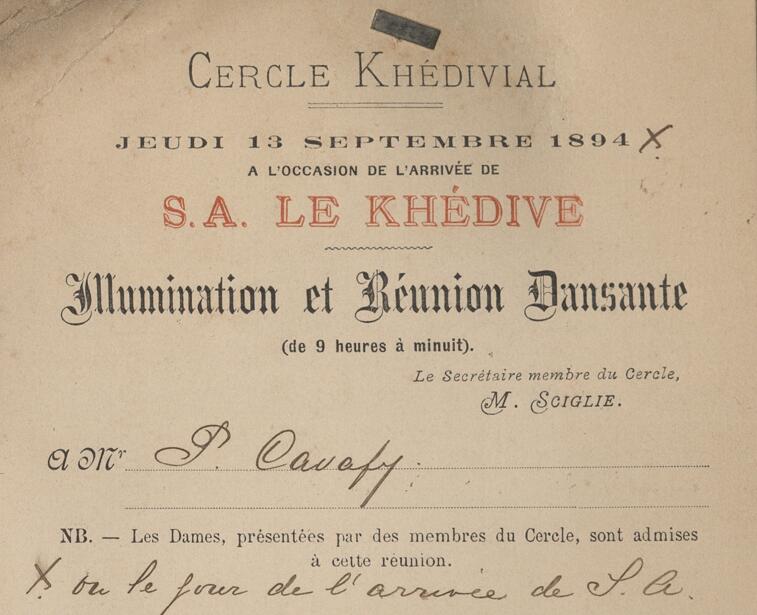 CERCLE KHÉDIVIAL
JEUDI 13 SEPTEMBRE 1894 X
A L'OCCASION DE L'ARRIVÉE DE
S.A. LE KHÉDIVE
Illumination et Réunion Dansante
(de 9 heures à minuit).
Le Secrétaire membre du Cercle,
M. SCIGLIE.
A Mr P. Cavafy
NB. — Les Dames, présentées par des membres du Cercle, sont admises
à cette réunion.
X ou le jour de l'arrivée de S. A.